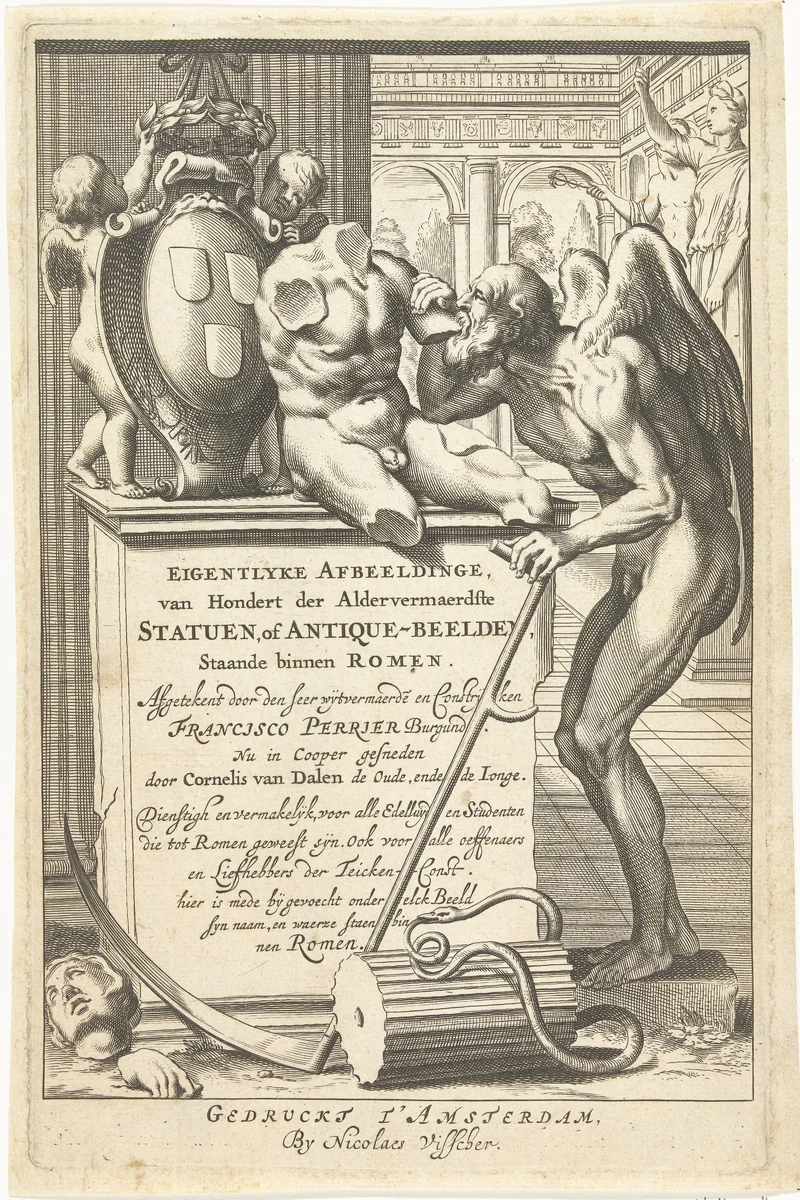 EIGENTLYKE AFBEELDINGE,
van Hondert der Aldervermaerdste
STATUEN, of ANTIQUE-BEELDEN,
Staande binnen ROMEN.
Afgetekent door den seer wÿtvermaerdē en Constrÿ ken
FRANCISCO PERRIER Burgund .
Nu in Cooper gesneden
door Cornelis van Dalen de Oude, ende de Ionge.
Dienstigh en vermakelÿk, voor alle Edelluÿd en Studenten
die tot Romen geweest sÿn. Ook voor alle oeffenaers
en Liefhebbers der Teicken-Const.
hier is mede bÿgevoecht onder elck Beeld
syn naam, en waerze staen bin
nen Romen.
GEDRUCKT T'AMSTERDAM,
By Nicolaes Visscher.